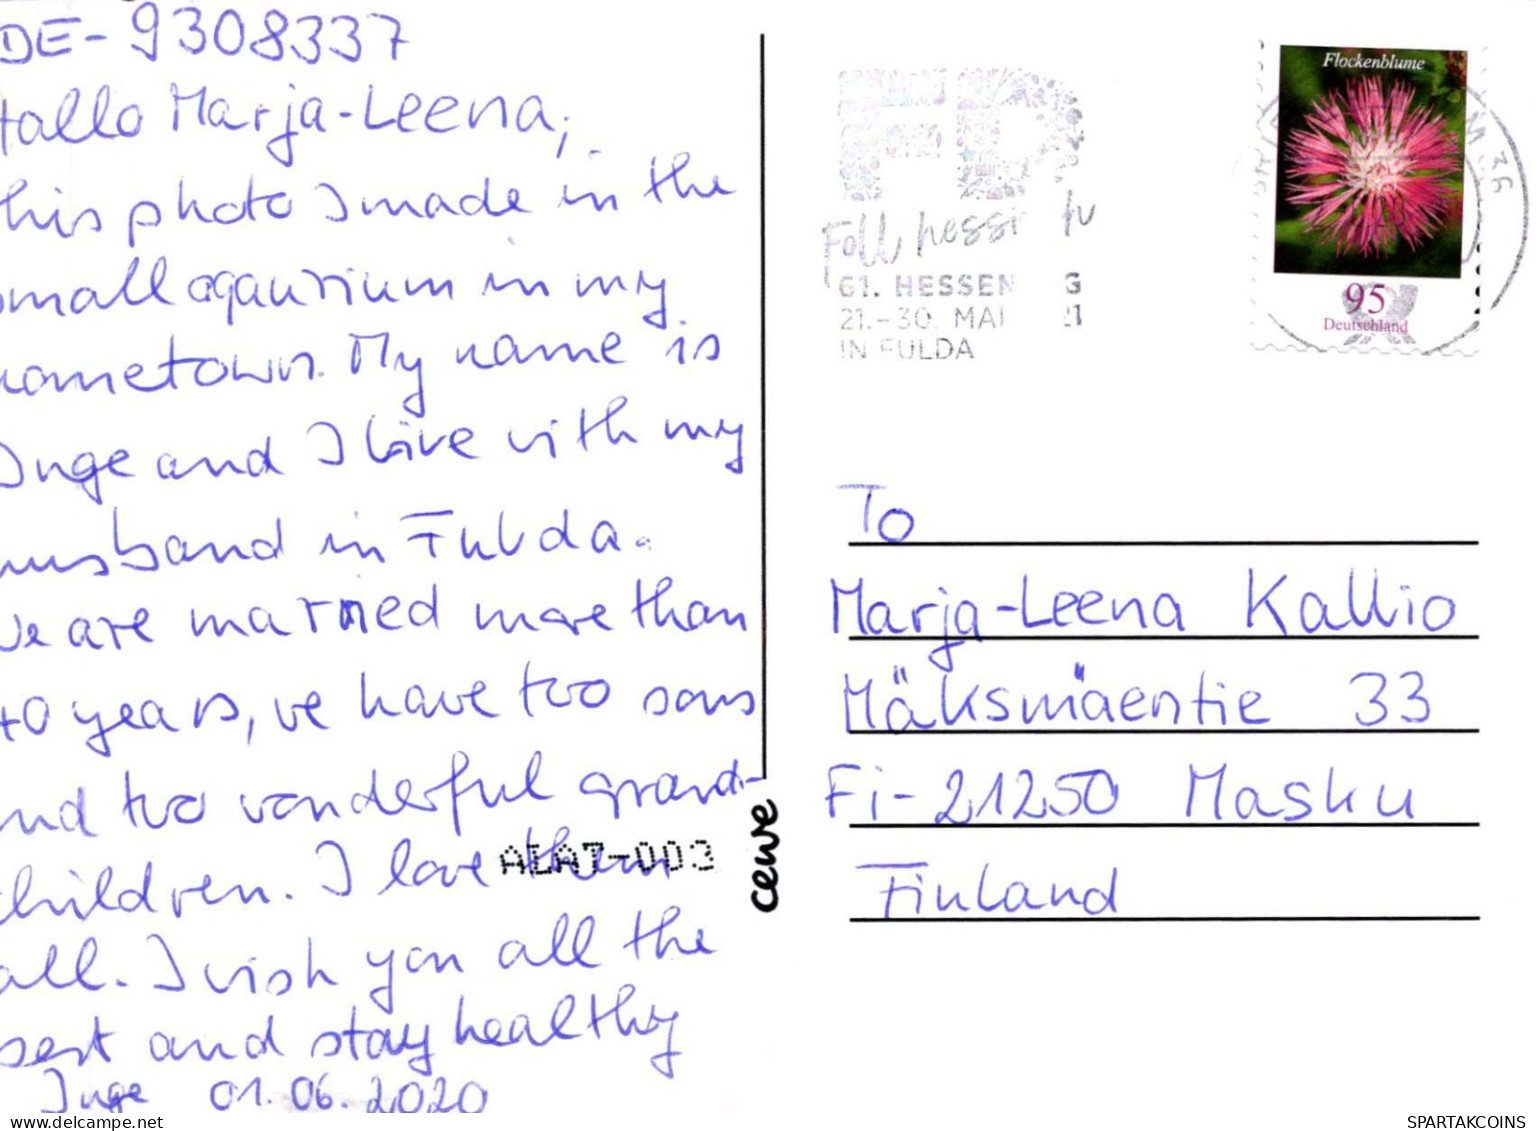 DE-9308337
Hallo Marja-Leena,
this photo I made in the
small aqaurium in my
hometown. My name is
Inge and I live with my
husband in Fulda.
We are married more than
40 years, we have two sons
and two wonderful grand-
children. I love them
all. I wish you all the
best and stay healthy
Inge 01.06.2020
AIA7-003
cewe
Foll hessisch
61. HESSEN G
21.-30. MAI 21
IN FULDA
Flockenblume
95
Deutschland
36
To
Marja-Leena Kallio
Mäksmäentie 33
Fi-21250 Masku
Finland
www.delcampe.net
tatjana1
SPARTAKCOINS